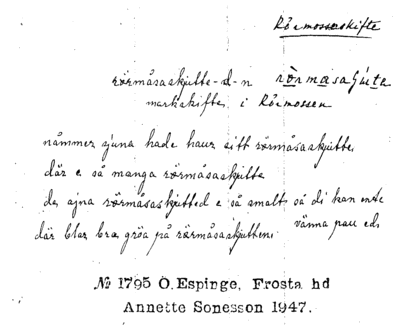 Rörmossaskifte
rörmåsaskjutte -d -n rörmasaʃúta
markskifte i Rörmossen
nämmer sjuna hade haur sitt rörmåsaskjutte
där e så manga rörmåsaskjutte
de ajna rörmåsaskjutted e så smalt så di kan ente
vänna pau ed
där blar bra gröa på rörmåsaskjutten
№ 1795 Ö. Espinge, Frosta hd
Annette Sonesson 1947.